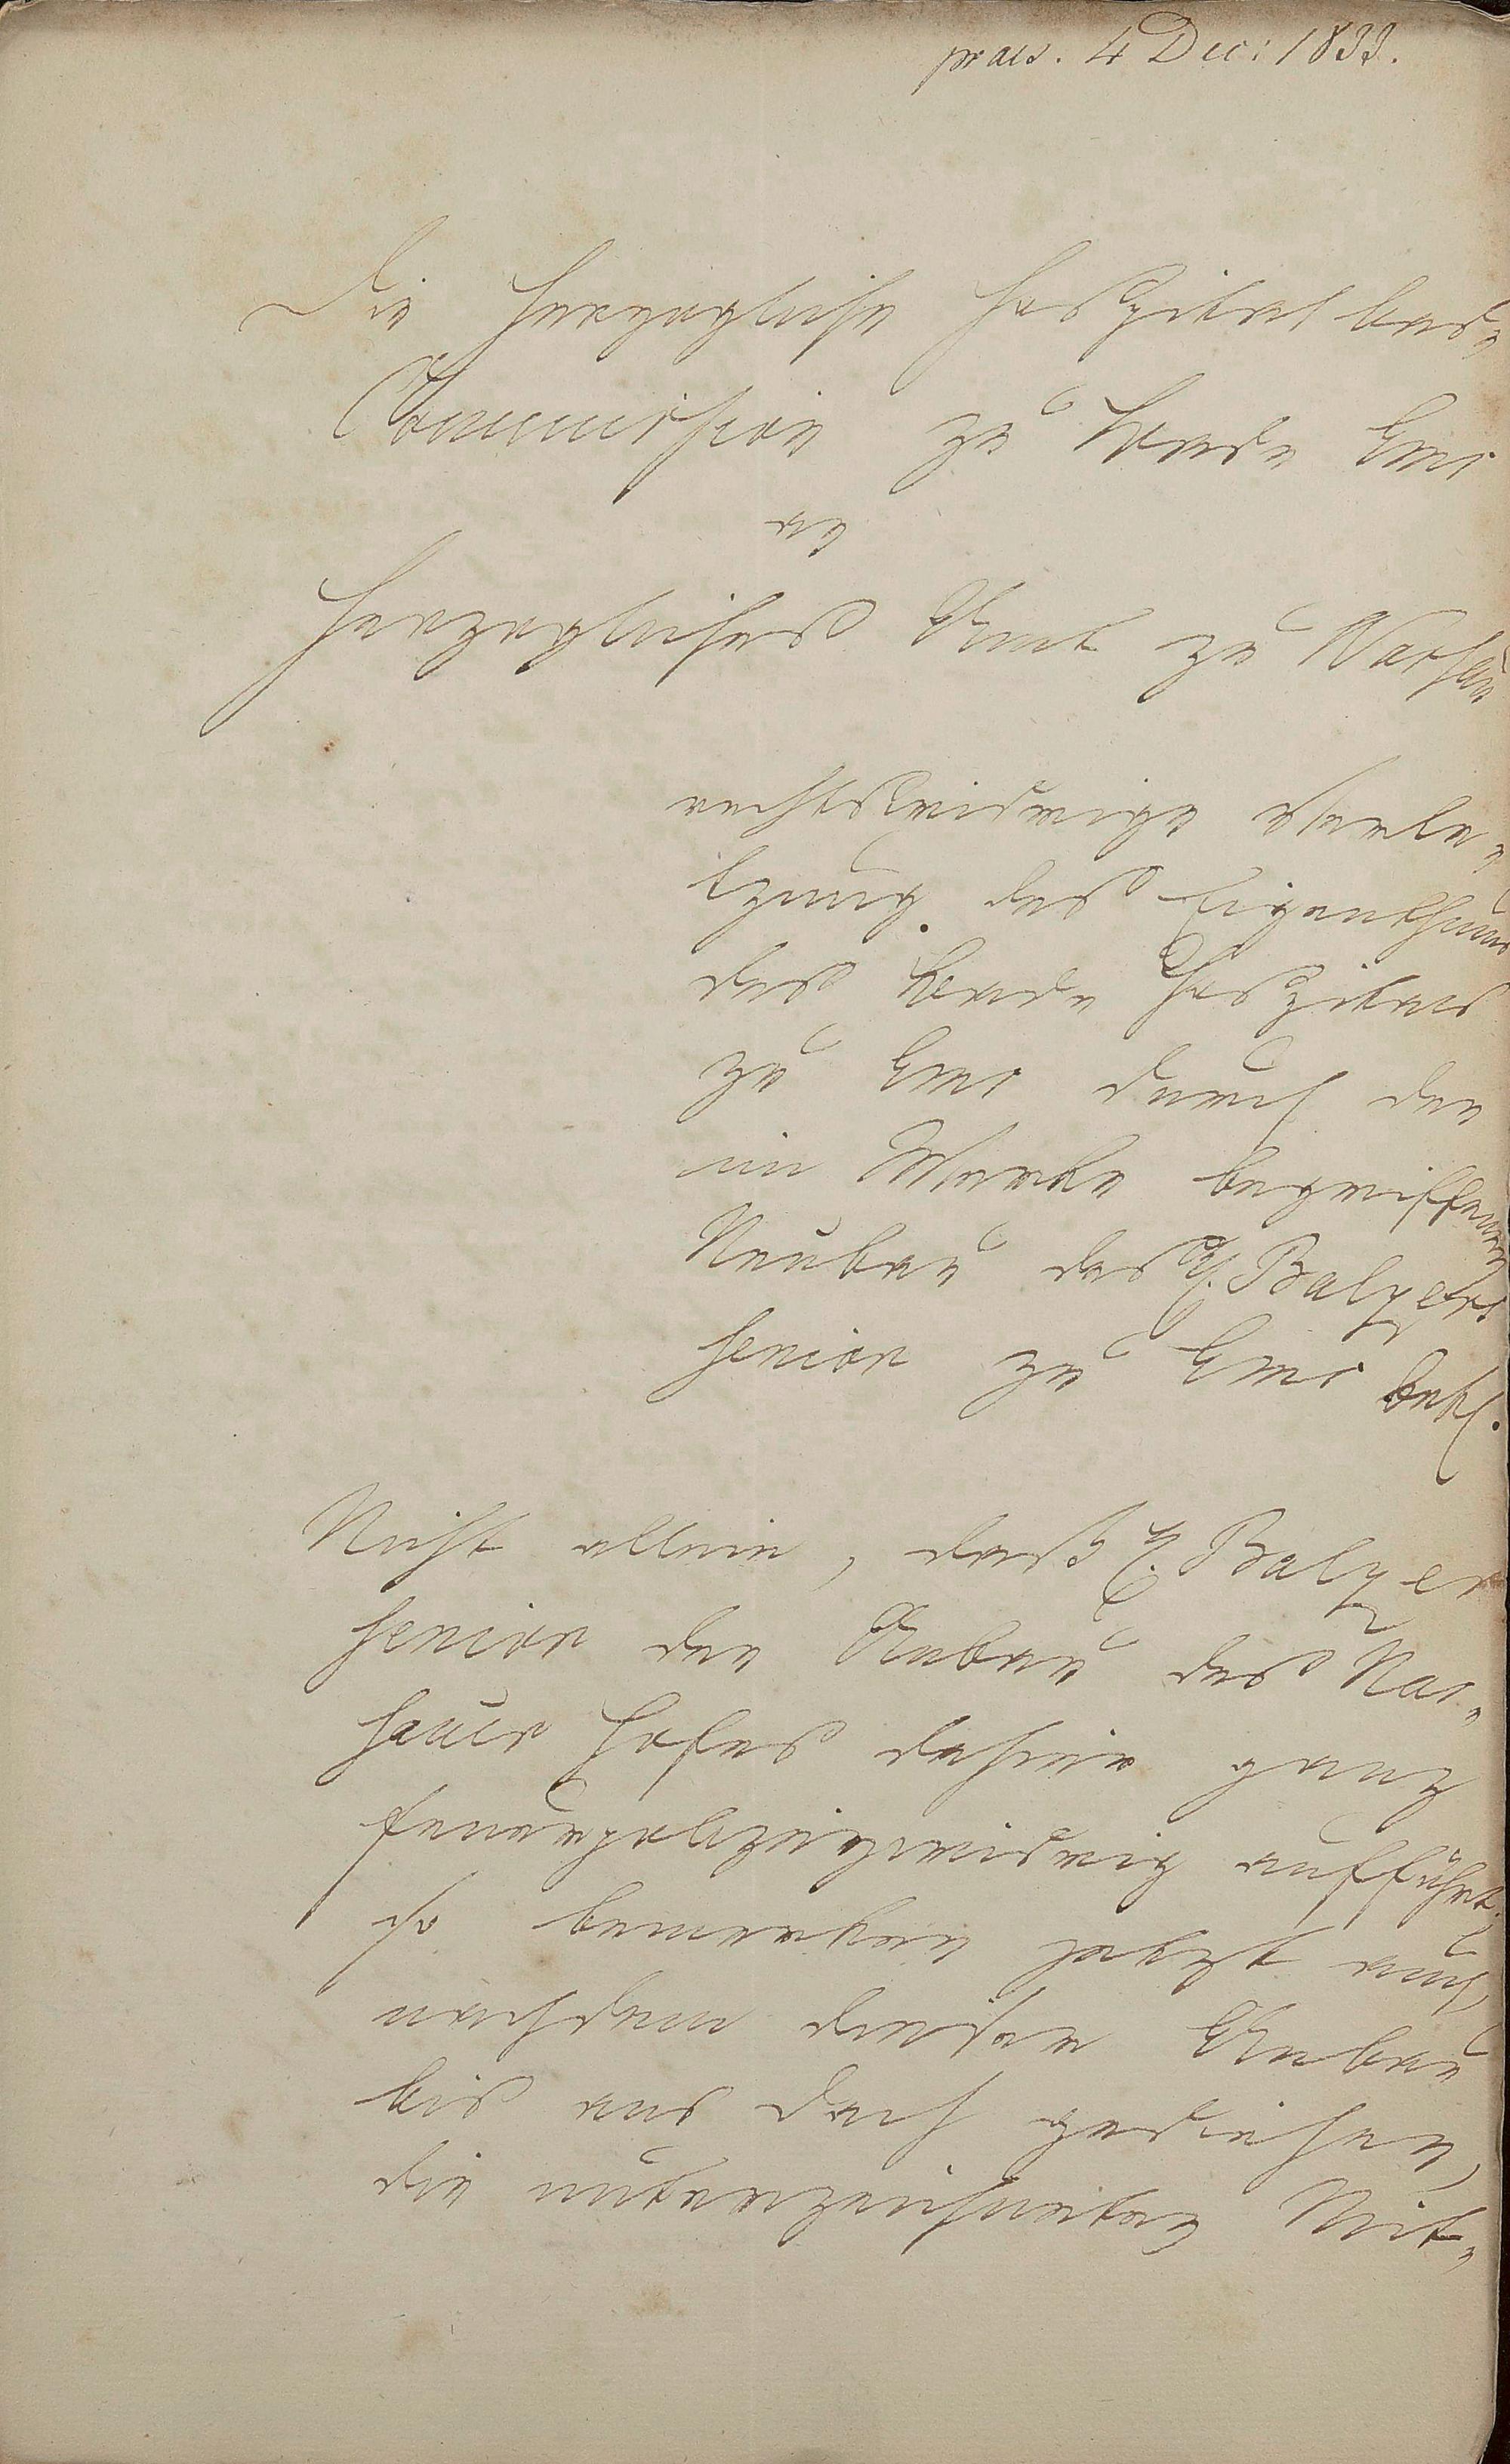 praes. 4 Dec: 1833.
Die Herzogliche Hospital bau-
Commission zu Bade Ems
an
Herzogliches Amt zu Nassau
rechtswidrige Verle-
tzung des Eigenthums
des Bade Hospitals
zu Ems durch den
im Werke begriffenen
Neubau des H. Balzers
senior zu Ems betf.
Nicht allein, daß H. Balzer
senior den Anbau des Nas-
sauer Hofes dahier ganz
feuerpolizeiwidrig aufführt,
so bemerken jetzt auch,
nachdem dieser Anbau
bis ans Dach gediehen,
die unterzeichneten Mit-